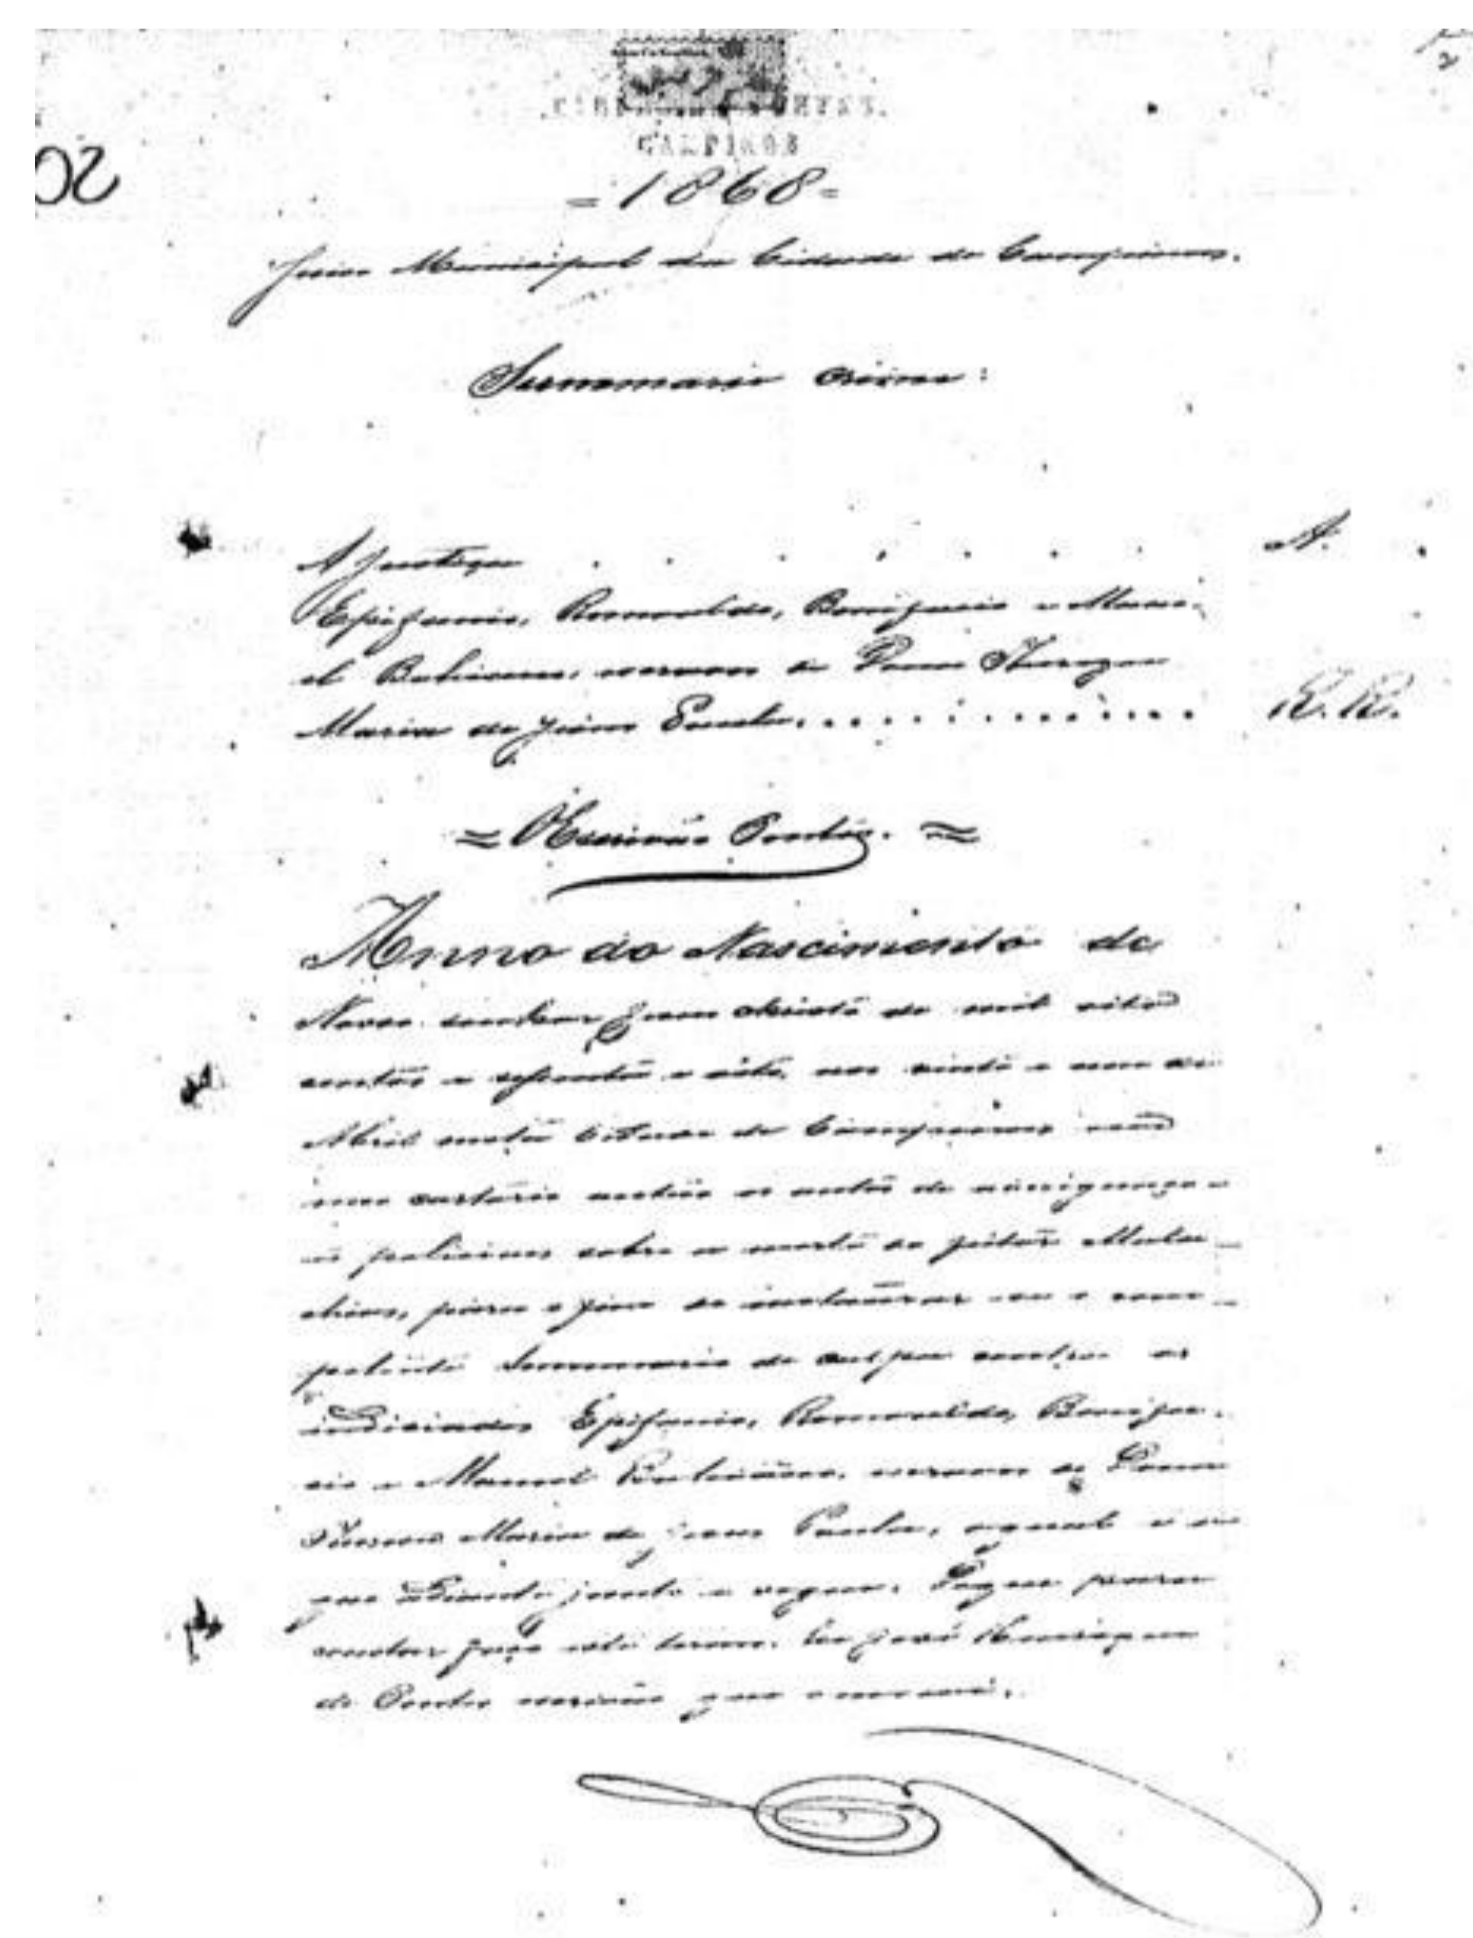 2
CAMPINAS
20
=1868=
Juizo Municipal da Cidade de Campinas.
Summario crime:
A Justiça . . . . . . . A.
Epifanio, Romualdo, Bonifacio e Mano-
el Bahiano, escravos de Dona Thereza
Maria de Jesus Paula. . . . . . . . . . . . . R.R.
= Escrivão Pontes. =
Anno do Nascimento de
Nosso Senhor Jesus Christo de mil oito
centos e sessenta e oito, aos vinte e um de
Abril nesta Cidade de Campinas em
meu cartorio autúo os autos de
policiaes sobre a morte do feitor Mala-
chias, para o fim de instaurar-se o com-
petente Summario de culpa contra os
indiciados Epifanio, Romualdo, Bonifa-
cio e Manoel Bahiano, escravos de Dona
Thereza Maria de Jesus Paula,
que adiante junto e segue. Do que para
constar faço este termo. Eu José Henrique
de Pontes escrivão que escrevi.